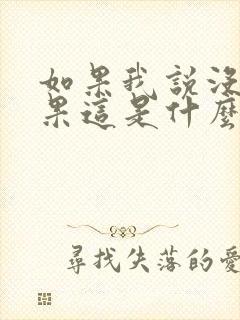 如果我說沒
果這是什麼
尋找失落的愛